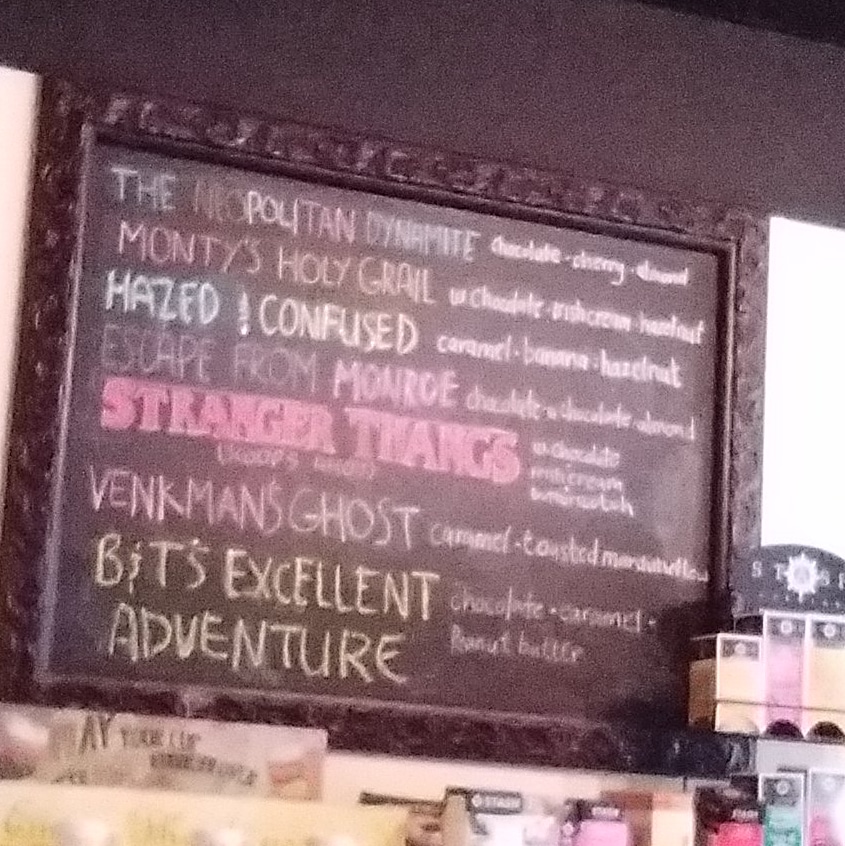 THE NEOPOLITAN DYNAMITE chocolate - cherry - almond
MONTY'S HOLY GRAIL w chocolate - irishcream - hazelnut
HAZED & CONFUSED caramel - banana - hazelnut
ESCAPE FROM MONROE chocolate - w chocolate - almond
STRANGER THANGS w chocolate
irishcream
butterscotch
VENKMAN'S GHOST caramel - toasted marshmellow
B&T'S EXCELLENT chocolate - caramel -
ADVENTURE Peanut butter
YOUR CUP
STASH